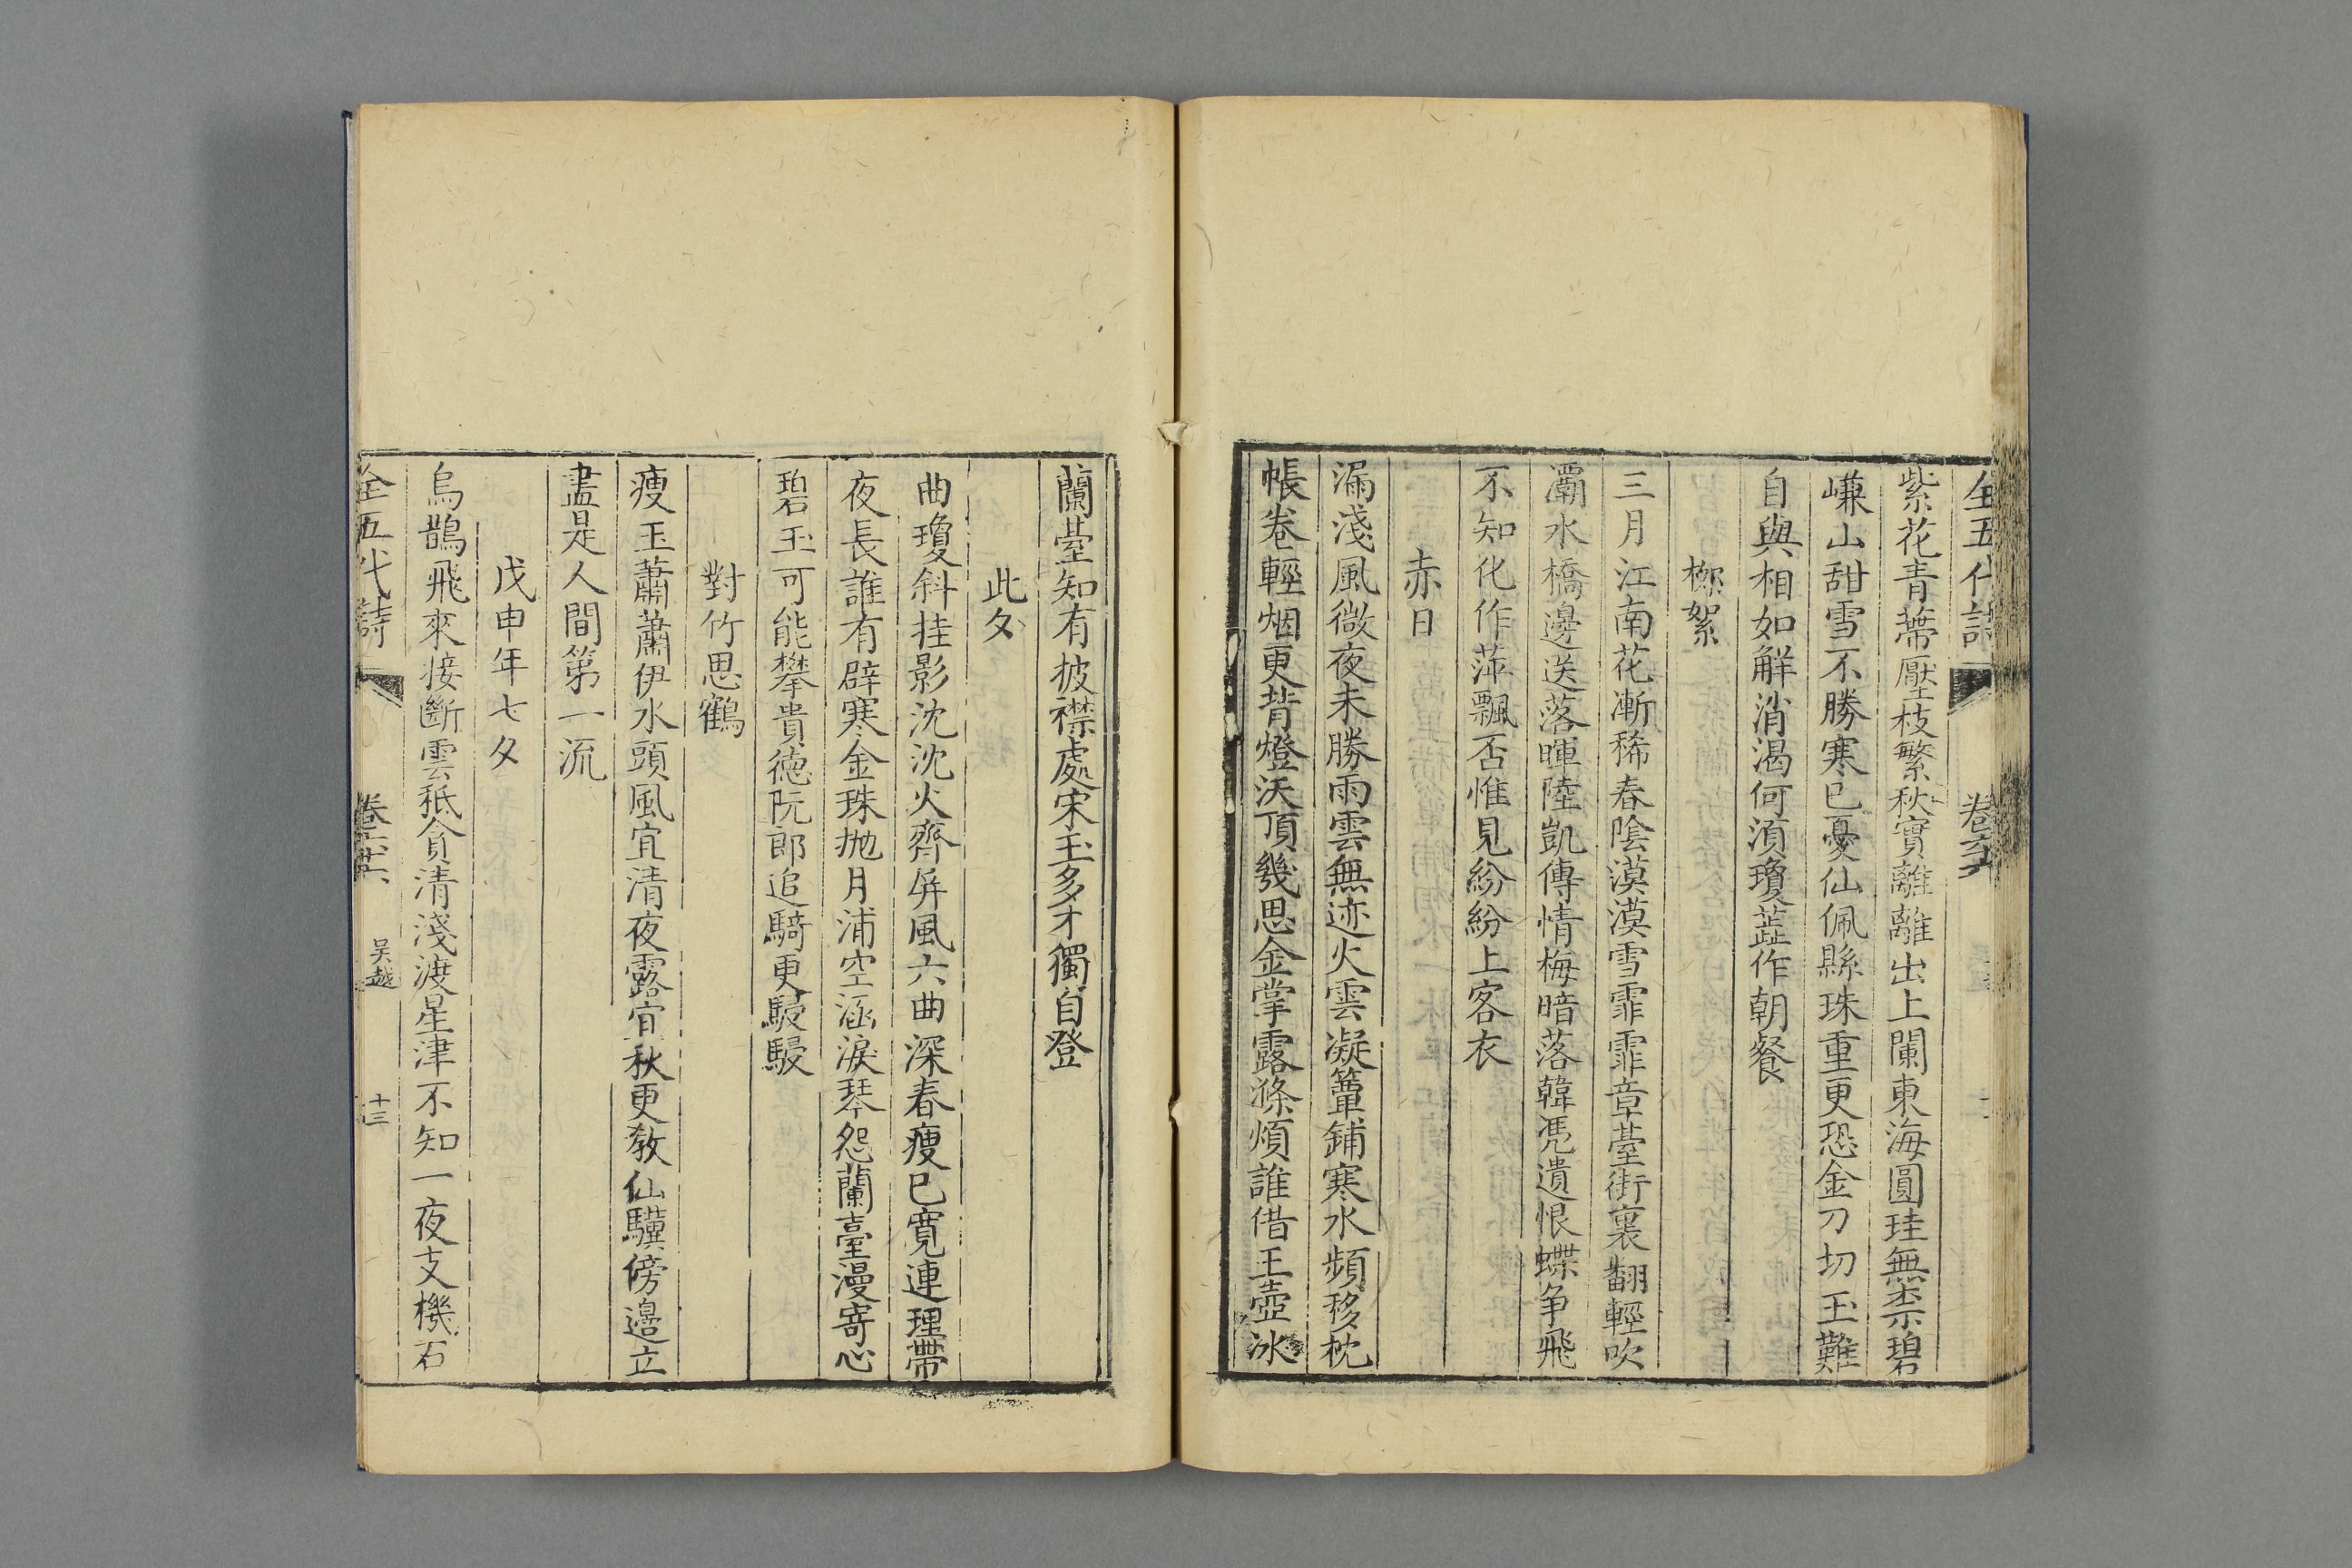 全五代詩 卷六十六
紫花青蔕壓枝繁秋實離離出上闌東海圓珪無柰碧
嵰山甜雪不勝寒已憂仙佩縣珠重更恐金刀切玉難
自與相如解消渴何湏瓊蘂作朝餐
桞絮
三月江南花漸稀春陰漠漠雪霏霏章臺街裏翻輕吹
灞水橋邊送落暉陸凱傳情梅暗落韓憑遺恨蝶争飛
不知化作萍飄否惟見紛紛上客衣
赤日
漏淺風微夜未勝雨雲無迹火雲凝簟鋪寒水頻移枕
帳卷輕烟更背燈沃頂幾思金掌露滌煩誰借玉壺冰
蘭臺知有披襟處宋玉多才獨自登
此夕
曲瓊斜挂影沈沈火齊屏風六曲深春瘦已寛連理帶
夜長誰有辟寒金珠抛月浦空涵淚琴怨蘭臺漫寄心
碧玉可能攀貴德阮郎追騎更駸駸
對竹思鶴
瘦玉蕭蕭伊水頭風宜清夜露宜秋更教仙驥傍邊立
盡是人間第一流
戊申年七夕
烏鵲飛來接斷雲秪貪清淺渡星津不知一夜支機石
全五代詩 卷六十六 吴越 十三